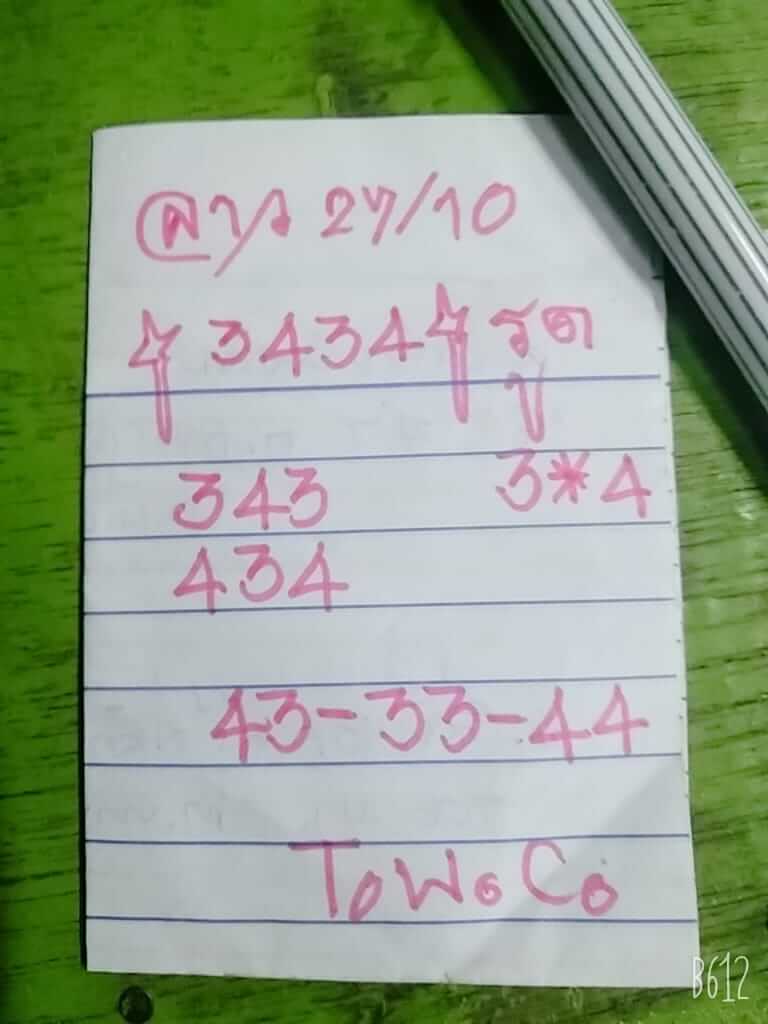 ลาว 27/10
3434 รูด
343 3*4
434
43-33-44
ToWoCo
B612